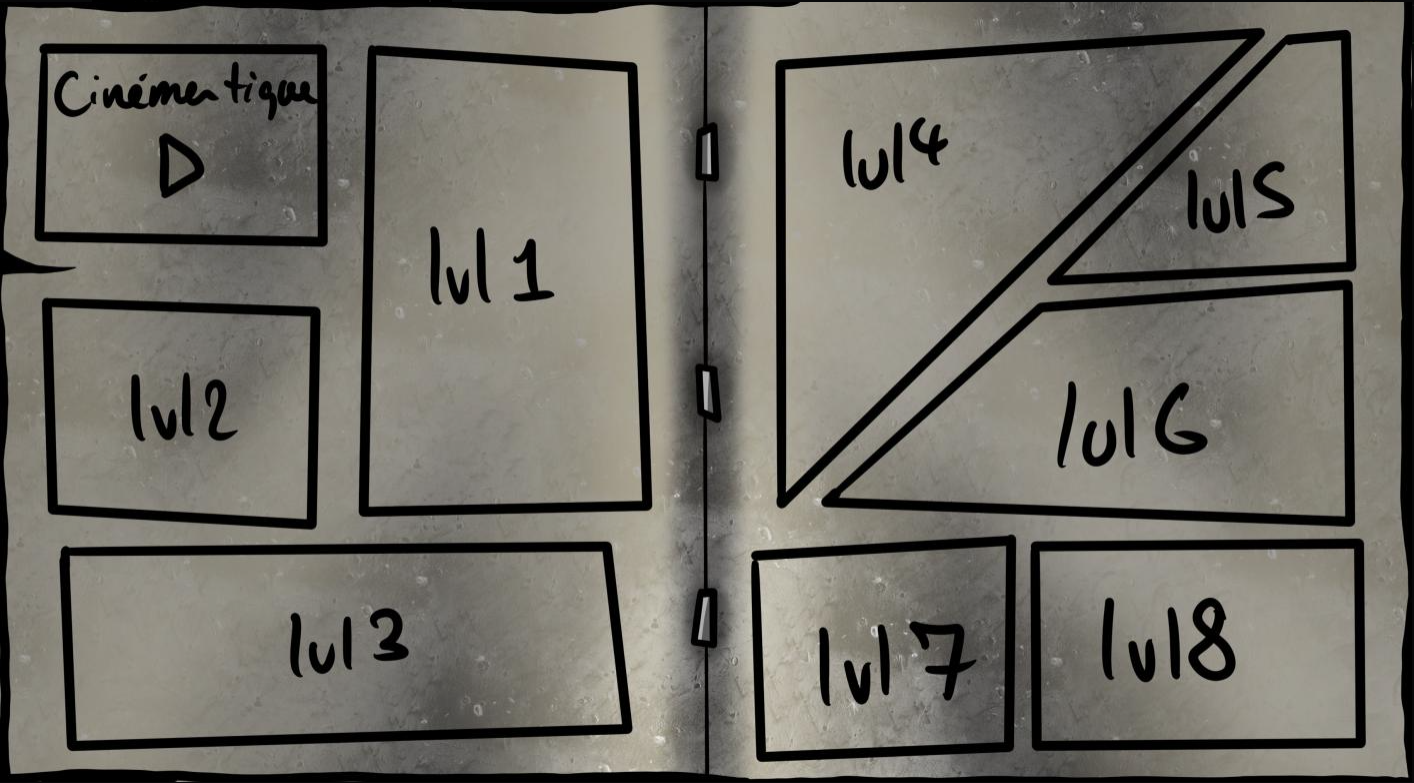 Cinémentique
lvl 1
lvl 2
lvl 3
lvl 4
lvl 5
lvl 6
lvl 7
lvl 8